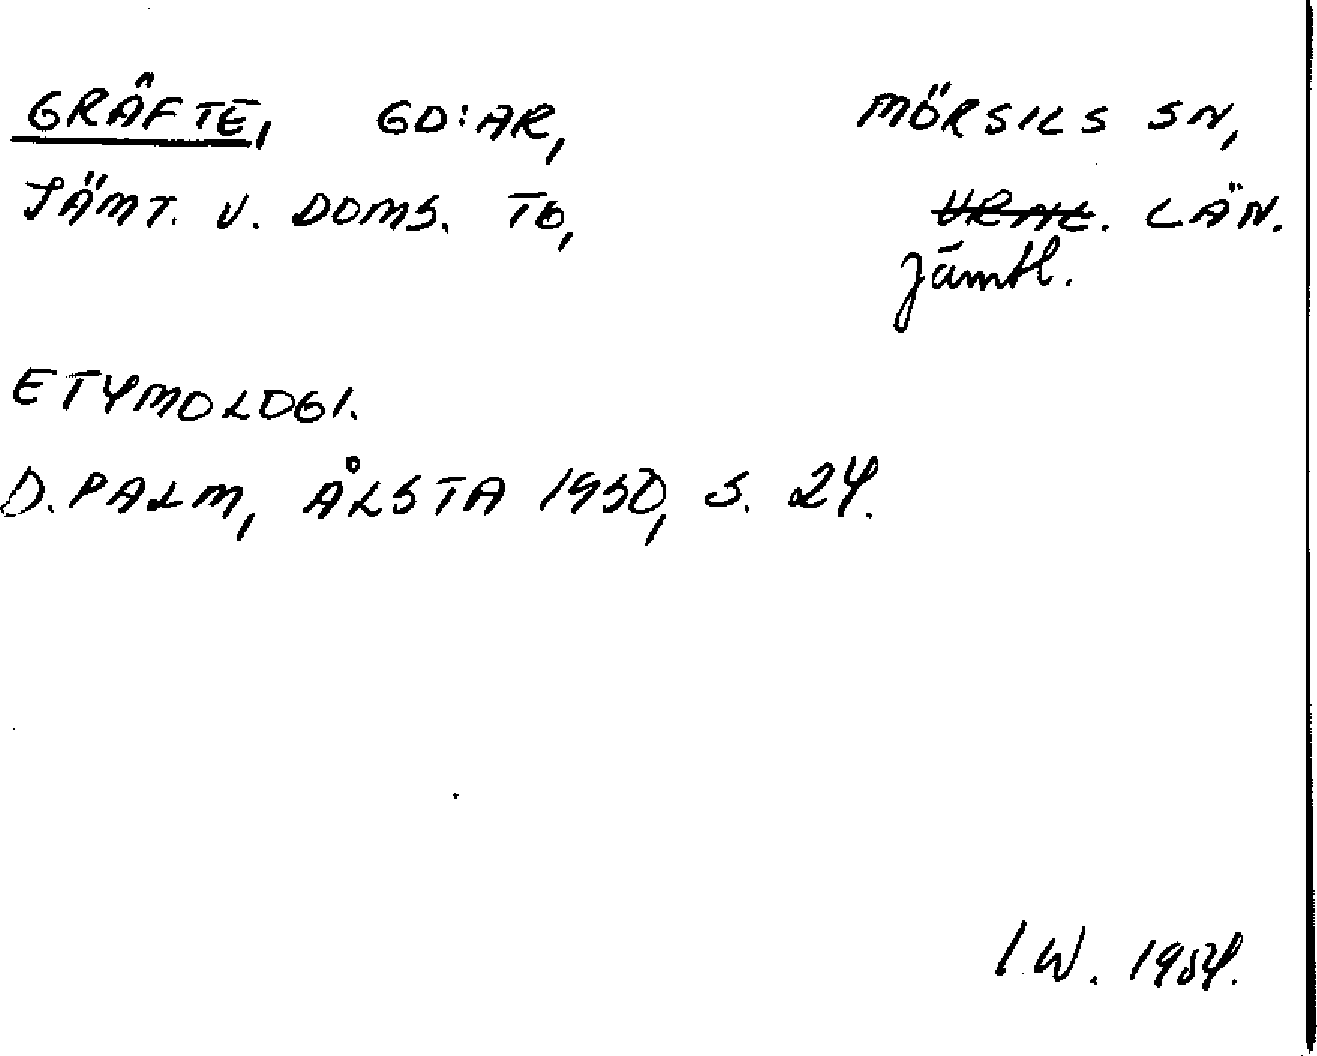 GRÄFTE, GD:AR, MÖRSILS SN,
JÄMT. V. DOMS. TG, LÄN.
Jämtl.
ETYMOLOGI.
D. PALM, ÅLSTA 1950, S. 24.
I W. 1954.